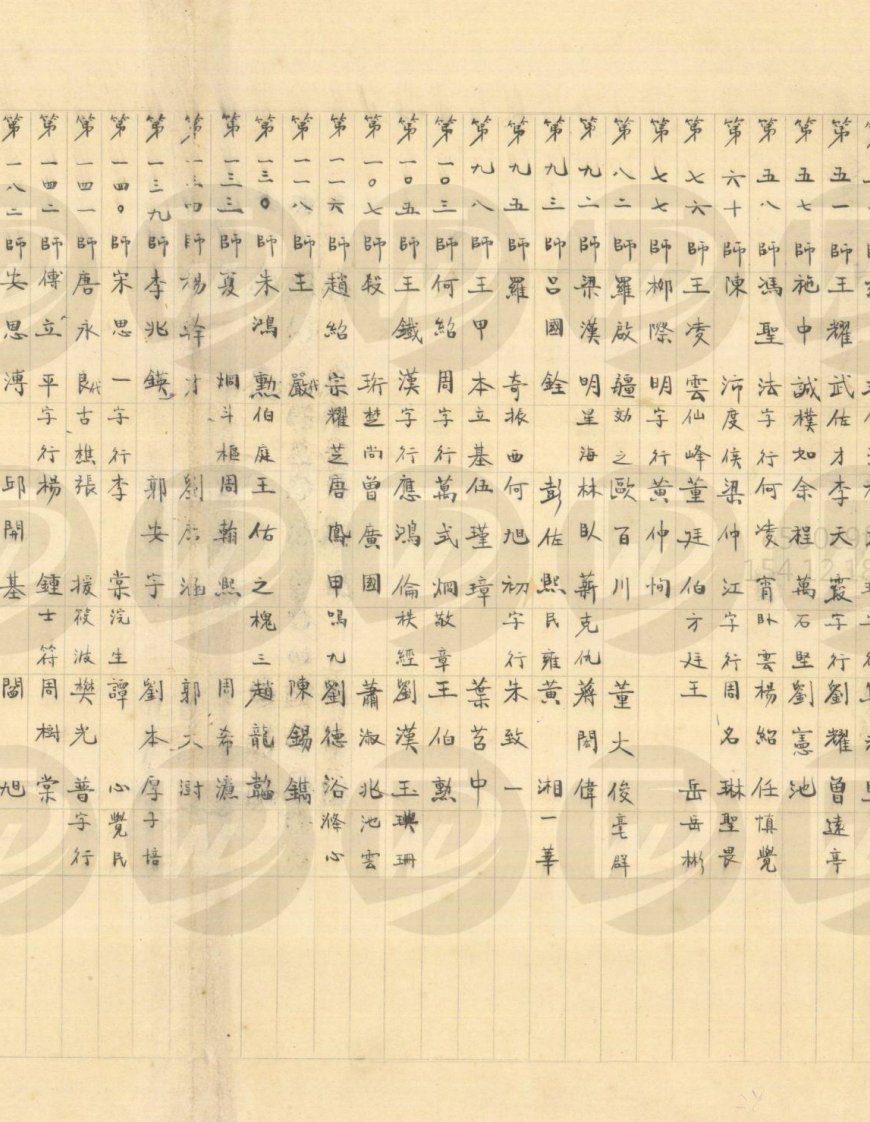 第五一師王耀武佐才李天霞字行劉耀曾遠亭
第五七師施中誠樸如余程萬石堅劉憲池
第五八師馮聖法字行何凌霄臥雲楊紹任慎覺
第六十師陳沛度侯梁仲江字行周名琳聖畏
第七六師王凌雲仙峰董廷伯方廷王岳岳彬
第七七師柳際明字行黃仲恂
第八二師羅啟疆効之歐百川董大俊亳群
第九二師梁漢明星海林臥薪克仇蔣閎偉
第九三師呂國銓彭佐熙民雍黃湘一華
第九五師羅奇振西何旭初字行朱致一
第九八師王甲本立基伍瑾璋葉苔中
第一〇三師何紹周字行萬式炯敬章王伯勲
第一〇五師王鐵漢字行應鴻倫秩經劉漢玉璵珊
第一〇七師段珩楚尚曾廣國蕭淑兆池雲
第一一六師趙紹宗耀芝唐鳳甲鳴九劉德浴滌心
第一一八師王嚴代陳錫鐫
第一三〇師朱鴻勲伯庭王佑之槐三趙龍韜
第一三三師夏炯斗樞周翰熙周希濂
師楊 才劉 涵郭
第一三九師李兆鍈郭安宇劉本厚子培
第一四〇師宋思一字行李棠浣生譚心覺民
第一四一師唐永良代古樵張援筱波樊光普字行
第一四二師傅立平字行楊鍾士符周樹棠
第一八二師安思溥邱開基閻旭